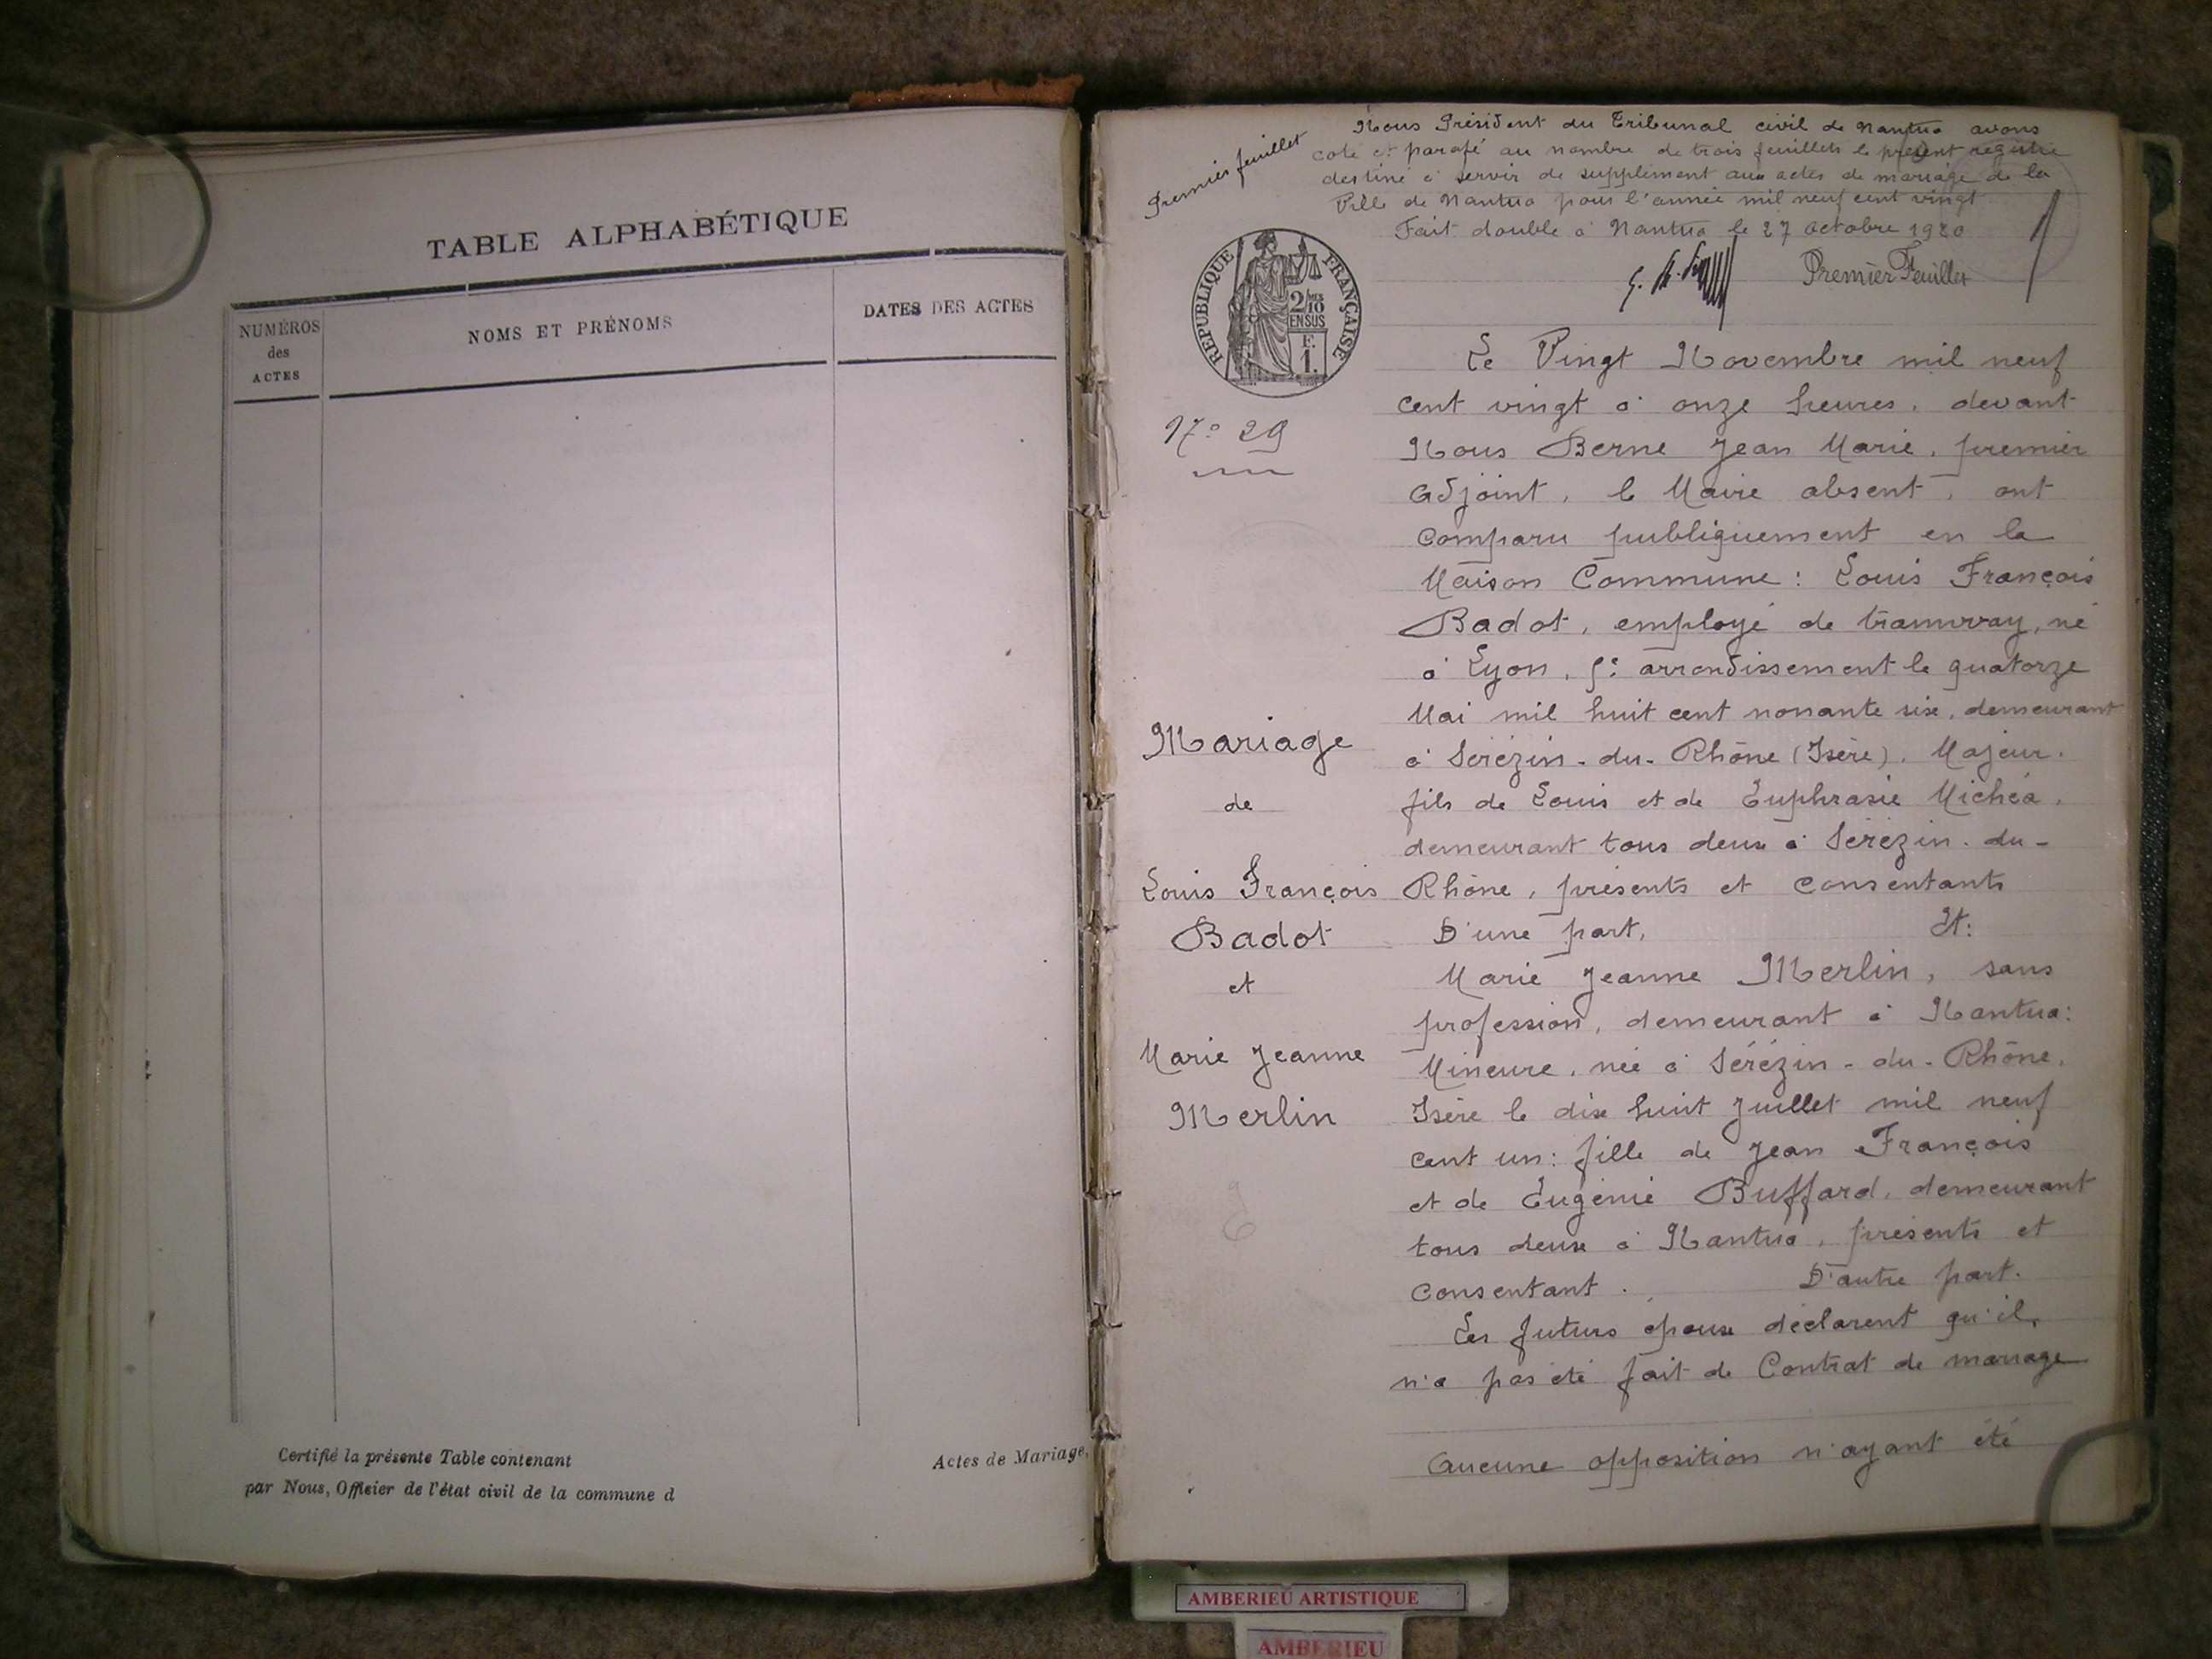 TABLE ALPHABÉTIQUE
NUMÉROS
des
ACTES
NOMS ET PRÉNOMS
DATES DES ACTES
Certifié la présente Table contenant
Actes de Mariage,
par Nous, Officier de l'état civil de la commune d
Premier feuillet
Nous Président du Tribunal civil de Nantua avons
coté et parafé au nombre de trois feuillets le présent registre
destiné à servir de supplément aux actes de mariage de la
Ville de Nantua pour l'année mil neuf cent vingt
Fait double à Nantua le 27 Octobre 1920
Premier Feuillet
RÉPUBLIQUE FRANÇAISE
2/10
EN SUS
F.
1.
N° 29
Mariage
de
Louis François
Badot
et
Marie Jeanne
Merlin
Le Vingt Novembre mil neuf
cent vingt à onze heures, devant
Nous Berne Jean Marie, premier
Adjoint, le Maire absent, ont
comparu publiquement en la
Maison Commune : Louis François
Badot, employé de tramway, né
à Lyon, 5e arrondissement le quatorze
Mai mil huit cent nonante six, demeurant
à Sérézin-du-Rhône (Isère). Majeur.
fils de Louis et de Euphrasie Michéa,
demeurant tous deux à Sérézin-du-
Rhône, présents et consentants
D'une part, Et:
Marie Jeanne Merlin, sans
profession, demeurant à Nantua:
Mineure, née à Sérézin-du-Rhône,
Isère le dix huit Juillet mil neuf
cent un: fille de Jean François
et de Eugénie Buffard, demeurant
tous deux à Nantua, présents et
consentant. D'autre part.
Les futurs époux déclarent qu'il
n'a pas été fait de Contrat de mariage
Aucune opposition n'ayant été
AMBERIEU ARTISTIQUE
AMBERIEU